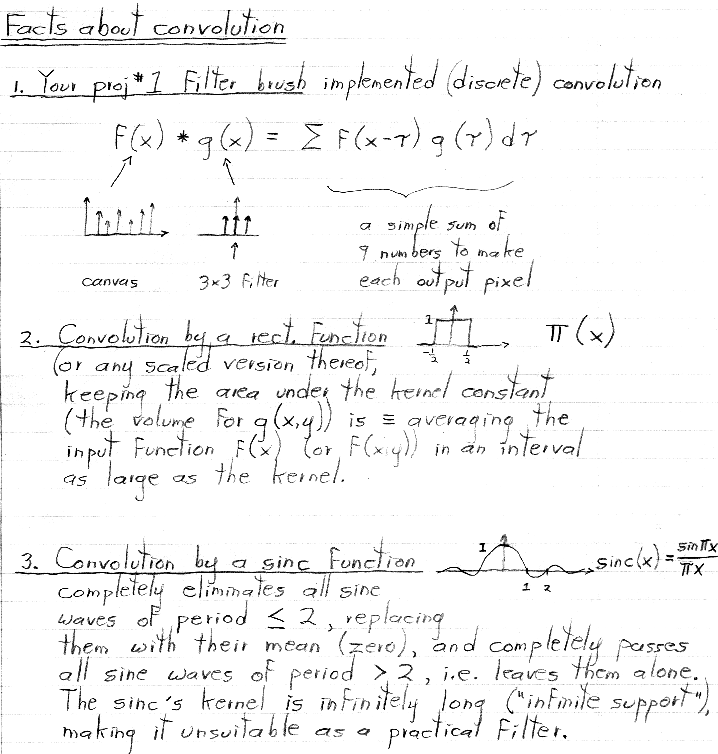 Facts about convolution
1. Your proj #1 Filter brush implemented (discrete) convolution
F(x) * g(x) = Σ F(x-τ) g(τ) dτ
a simple sum of
9 numbers to make
canvas 3×3 Filter each output pixel
2. Convolution by a rect. Function 1 -½ ½ Π(x)
(or any scaled version thereof,
keeping the area under the kernel constant
(the volume for g(x,y)) is ≡ averaging the
input function F(x) (or F(x,y)) in an interval
as large as the kernel.
3. Convolution by a sinc Function 1 1 2 sinc(x) = sin πx / πx
completely eliminates all sine
waves of period ≤ 2, replacing
them with their mean (zero), and completely passes
all sine waves of period > 2, i.e. leaves them alone.
The sinc's kernel is infinitely long ("infinite support"),
making it unsuitable as a practical Filter.